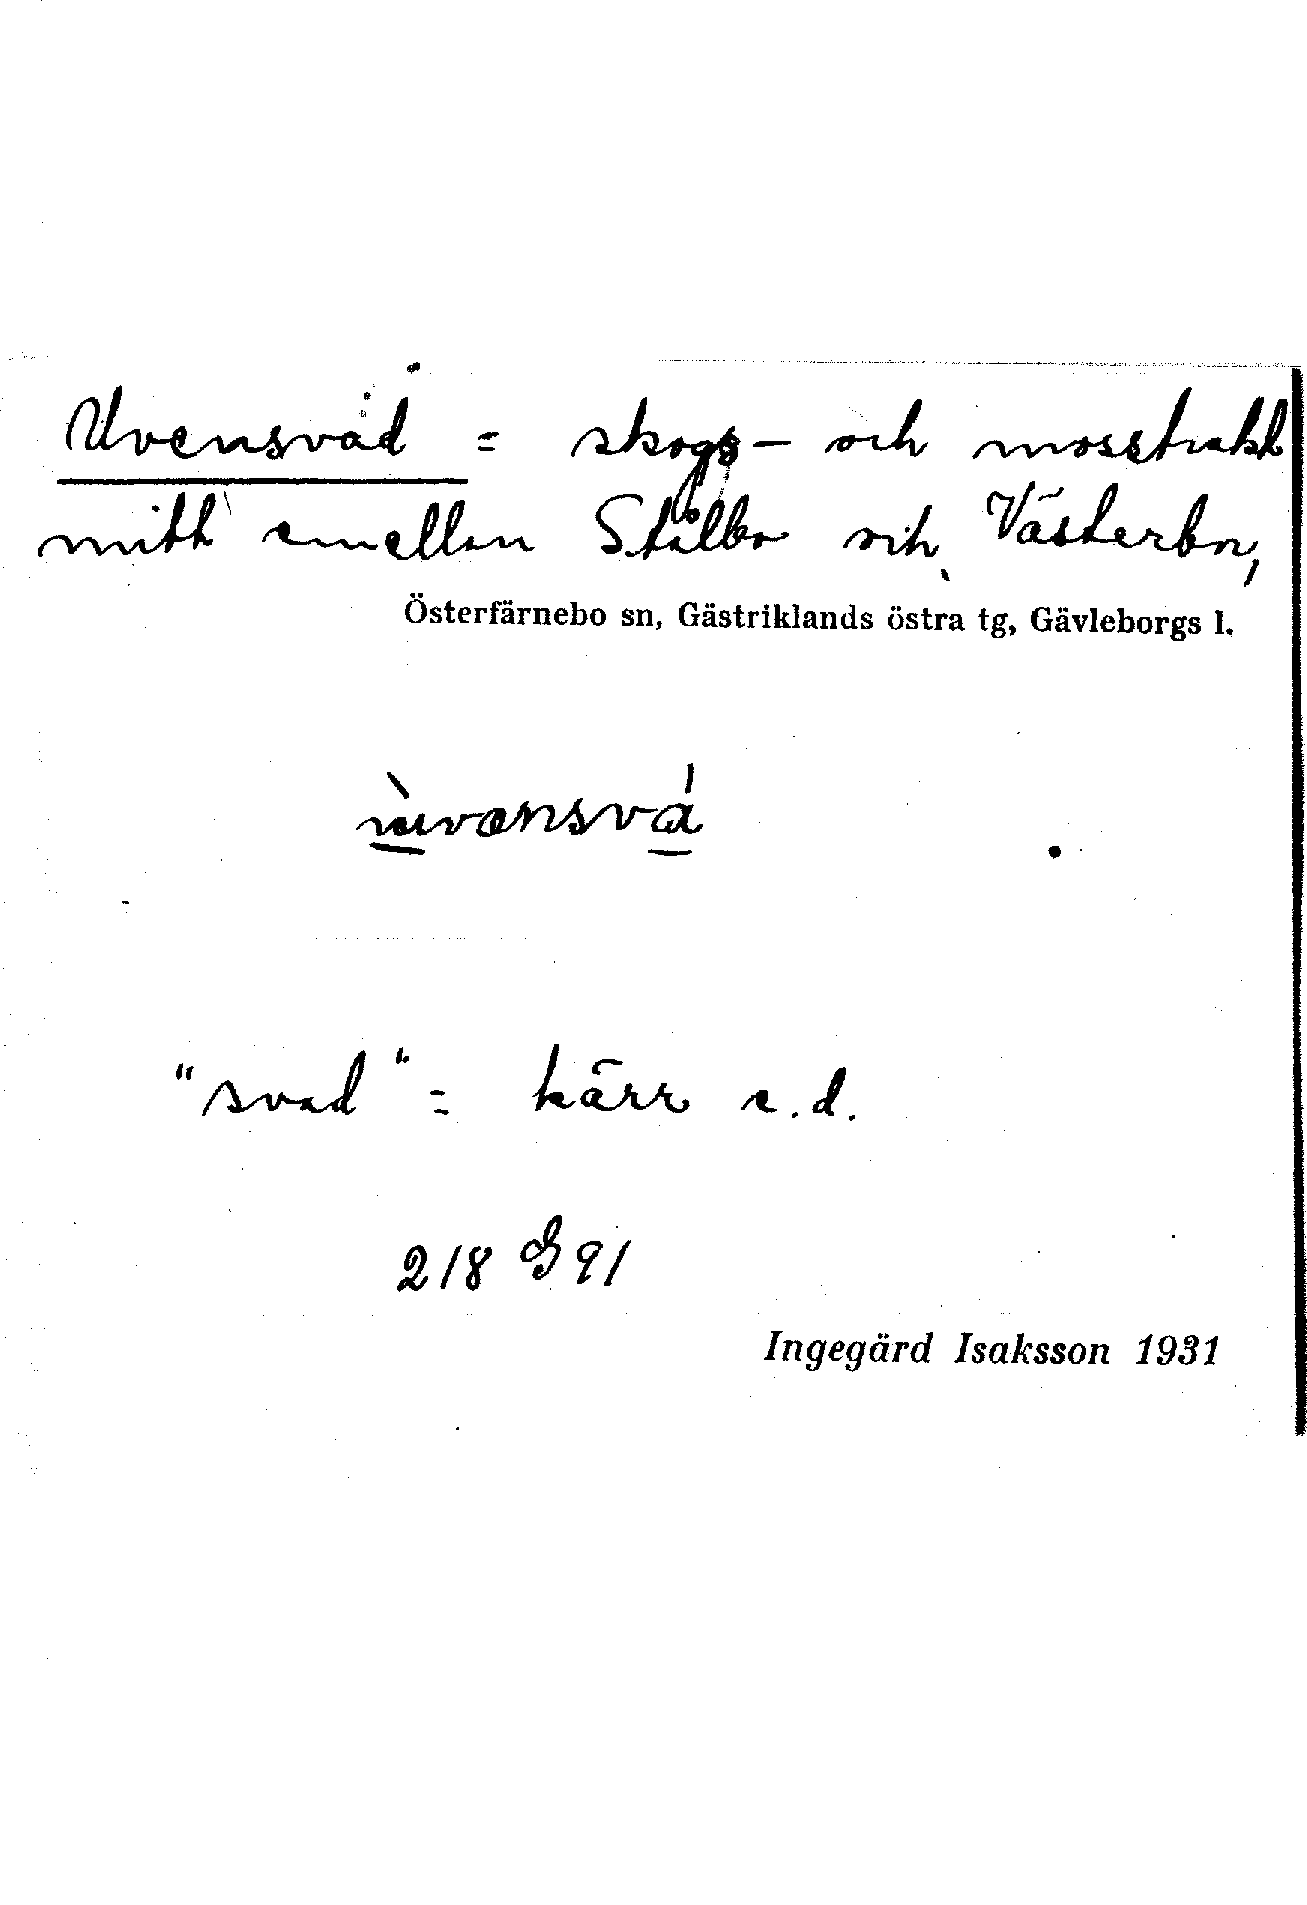 Uvensvad = skogs- och mosstrakt
mitt emellan Stålbo och Västerbo,
Österfärnebo sn, Gästriklands östra tg, Gävleborgs l.
"svad" = kärr e.d.
218 91
Ingegärd Isaksson 1931